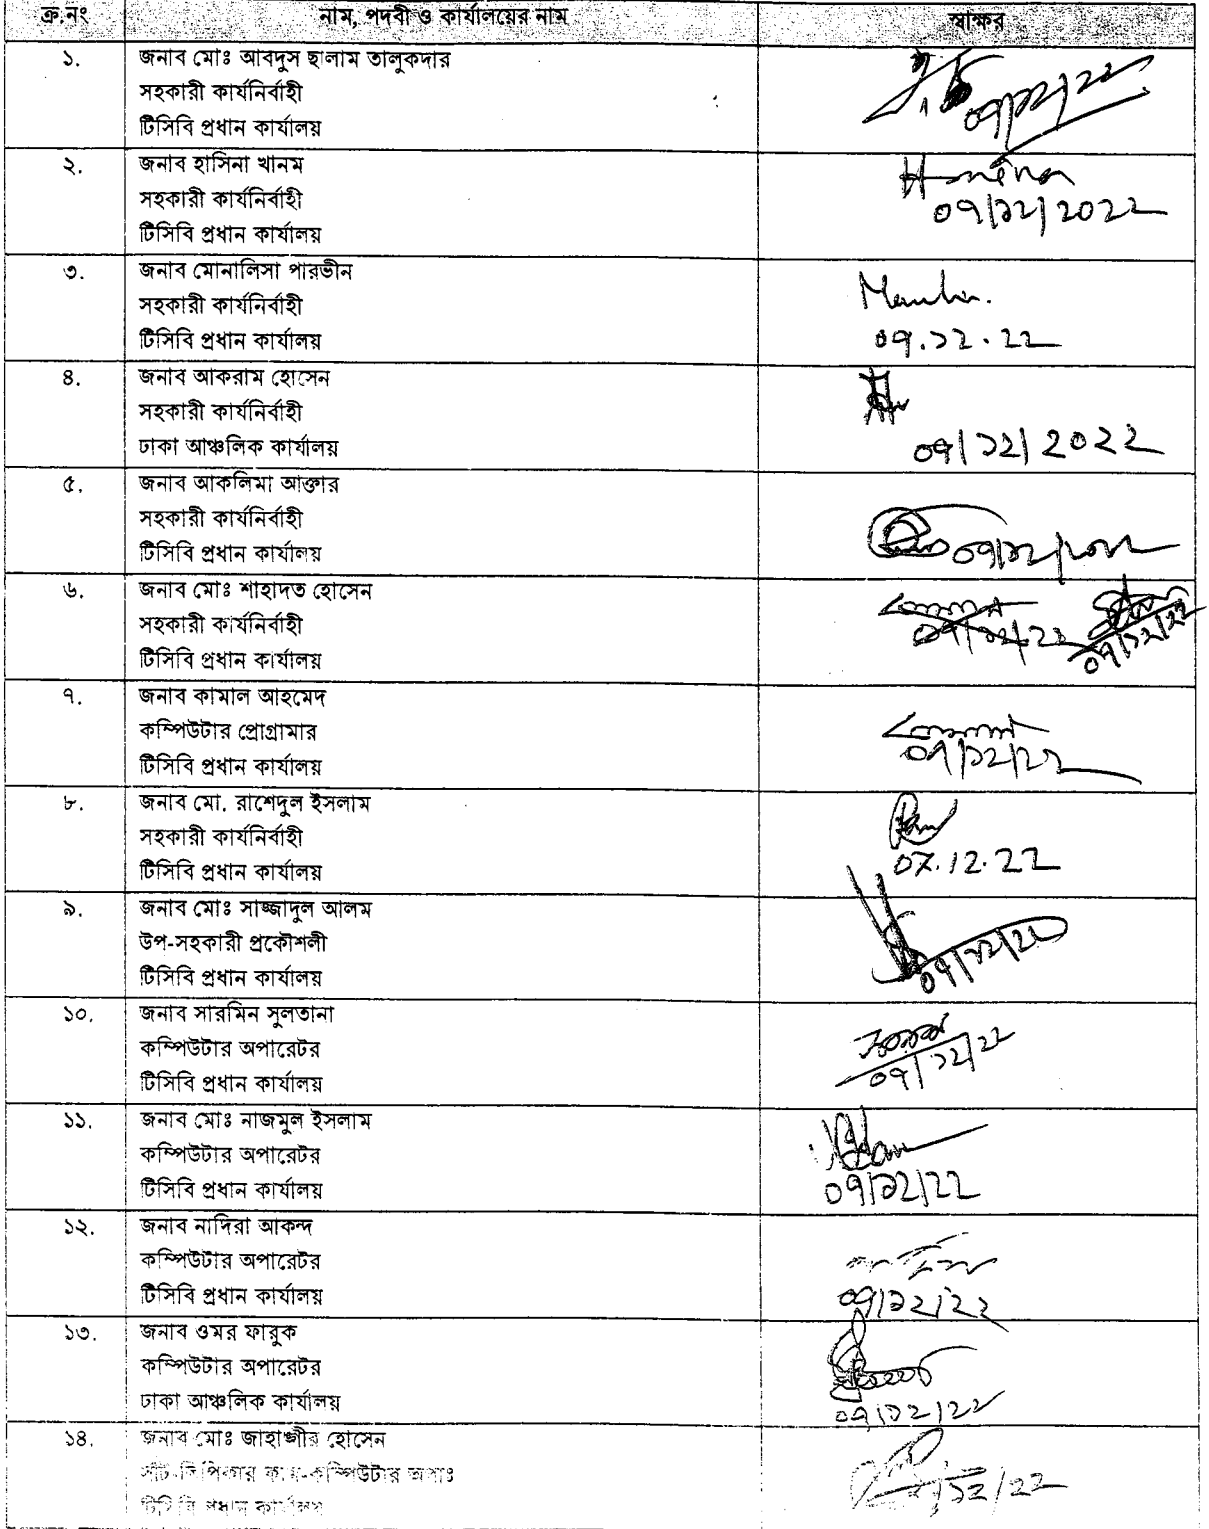 ক্র.নং নাম, পদবী ও কার্যালয়ের নাম স্বাক্ষর
১. জনাব মোঃ আবদুস ছালাম তালুকদার
সহকারী কার্যনির্বাহী
টিসিবি প্রধান কার্যালয়
০৭/১২/২২
২. জনাব হাসিনা খানম
সহকারী কার্যনির্বাহী
টিসিবি প্রধান কার্যালয়
০৭/১২/২০২২
৩. জনাব মোনালিসা পারভীন
সহকারী কার্যনির্বাহী
টিসিবি প্রধান কার্যালয়
০৭.১২.২২
৪. জনাব আকরাম হোসেন
সহকারী কার্যনির্বাহী
ঢাকা আঞ্চলিক কার্যালয়
০৭/১২/২০২২
৫. জনাব আকলিমা আক্তার
সহকারী কার্যনির্বাহী
টিসিবি প্রধান কার্যালয়
০৭/১২/২০২২
৬. জনাব মোঃ শাহাদত হোসেন
সহকারী কার্যনির্বাহী
টিসিবি প্রধান কার্যালয়
০৭/১২/২২ ০৭/১২/২২
৭. জনাব কামাল আহমেদ
কম্পিউটার প্রোগ্রামার
টিসিবি প্রধান কার্যালয়
০৭/১২/২২
৮. জনাব মো. রাশেদুল ইসলাম
সহকারী কার্যনির্বাহী
টিসিবি প্রধান কার্যালয়
07.12.22
৯. জনাব মোঃ সাজ্জাদুল আলম
উপ-সহকারী প্রকৌশলী
টিসিবি প্রধান কার্যালয়
০৭/১২/২২
১০. জনাব সারমিন সুলতানা
কম্পিউটার অপারেটর
টিসিবি প্রধান কার্যালয়
০৭/১২/২২
১১. জনাব মোঃ নাজমুল ইসলাম
কম্পিউটার অপারেটর
টিসিবি প্রধান কার্যালয়
০৭/১২/২২
১২. জনাব নাদিরা আকন্দ
কম্পিউটার অপারেটর
টিসিবি প্রধান কার্যালয়
০৭/১২/২২
১৩. জনাব ওমর ফারুক
কম্পিউটার অপারেটর
ঢাকা আঞ্চলিক কার্যালয়
০৭/১২/২২
১৪. জনাব মোঃ জাহাঙ্গীর হোসেন
সাঁট-লিপিকার কাম-কম্পিউটার অপাঃ
টিসিবি প্রধান কার্যালয়
/১২/২২